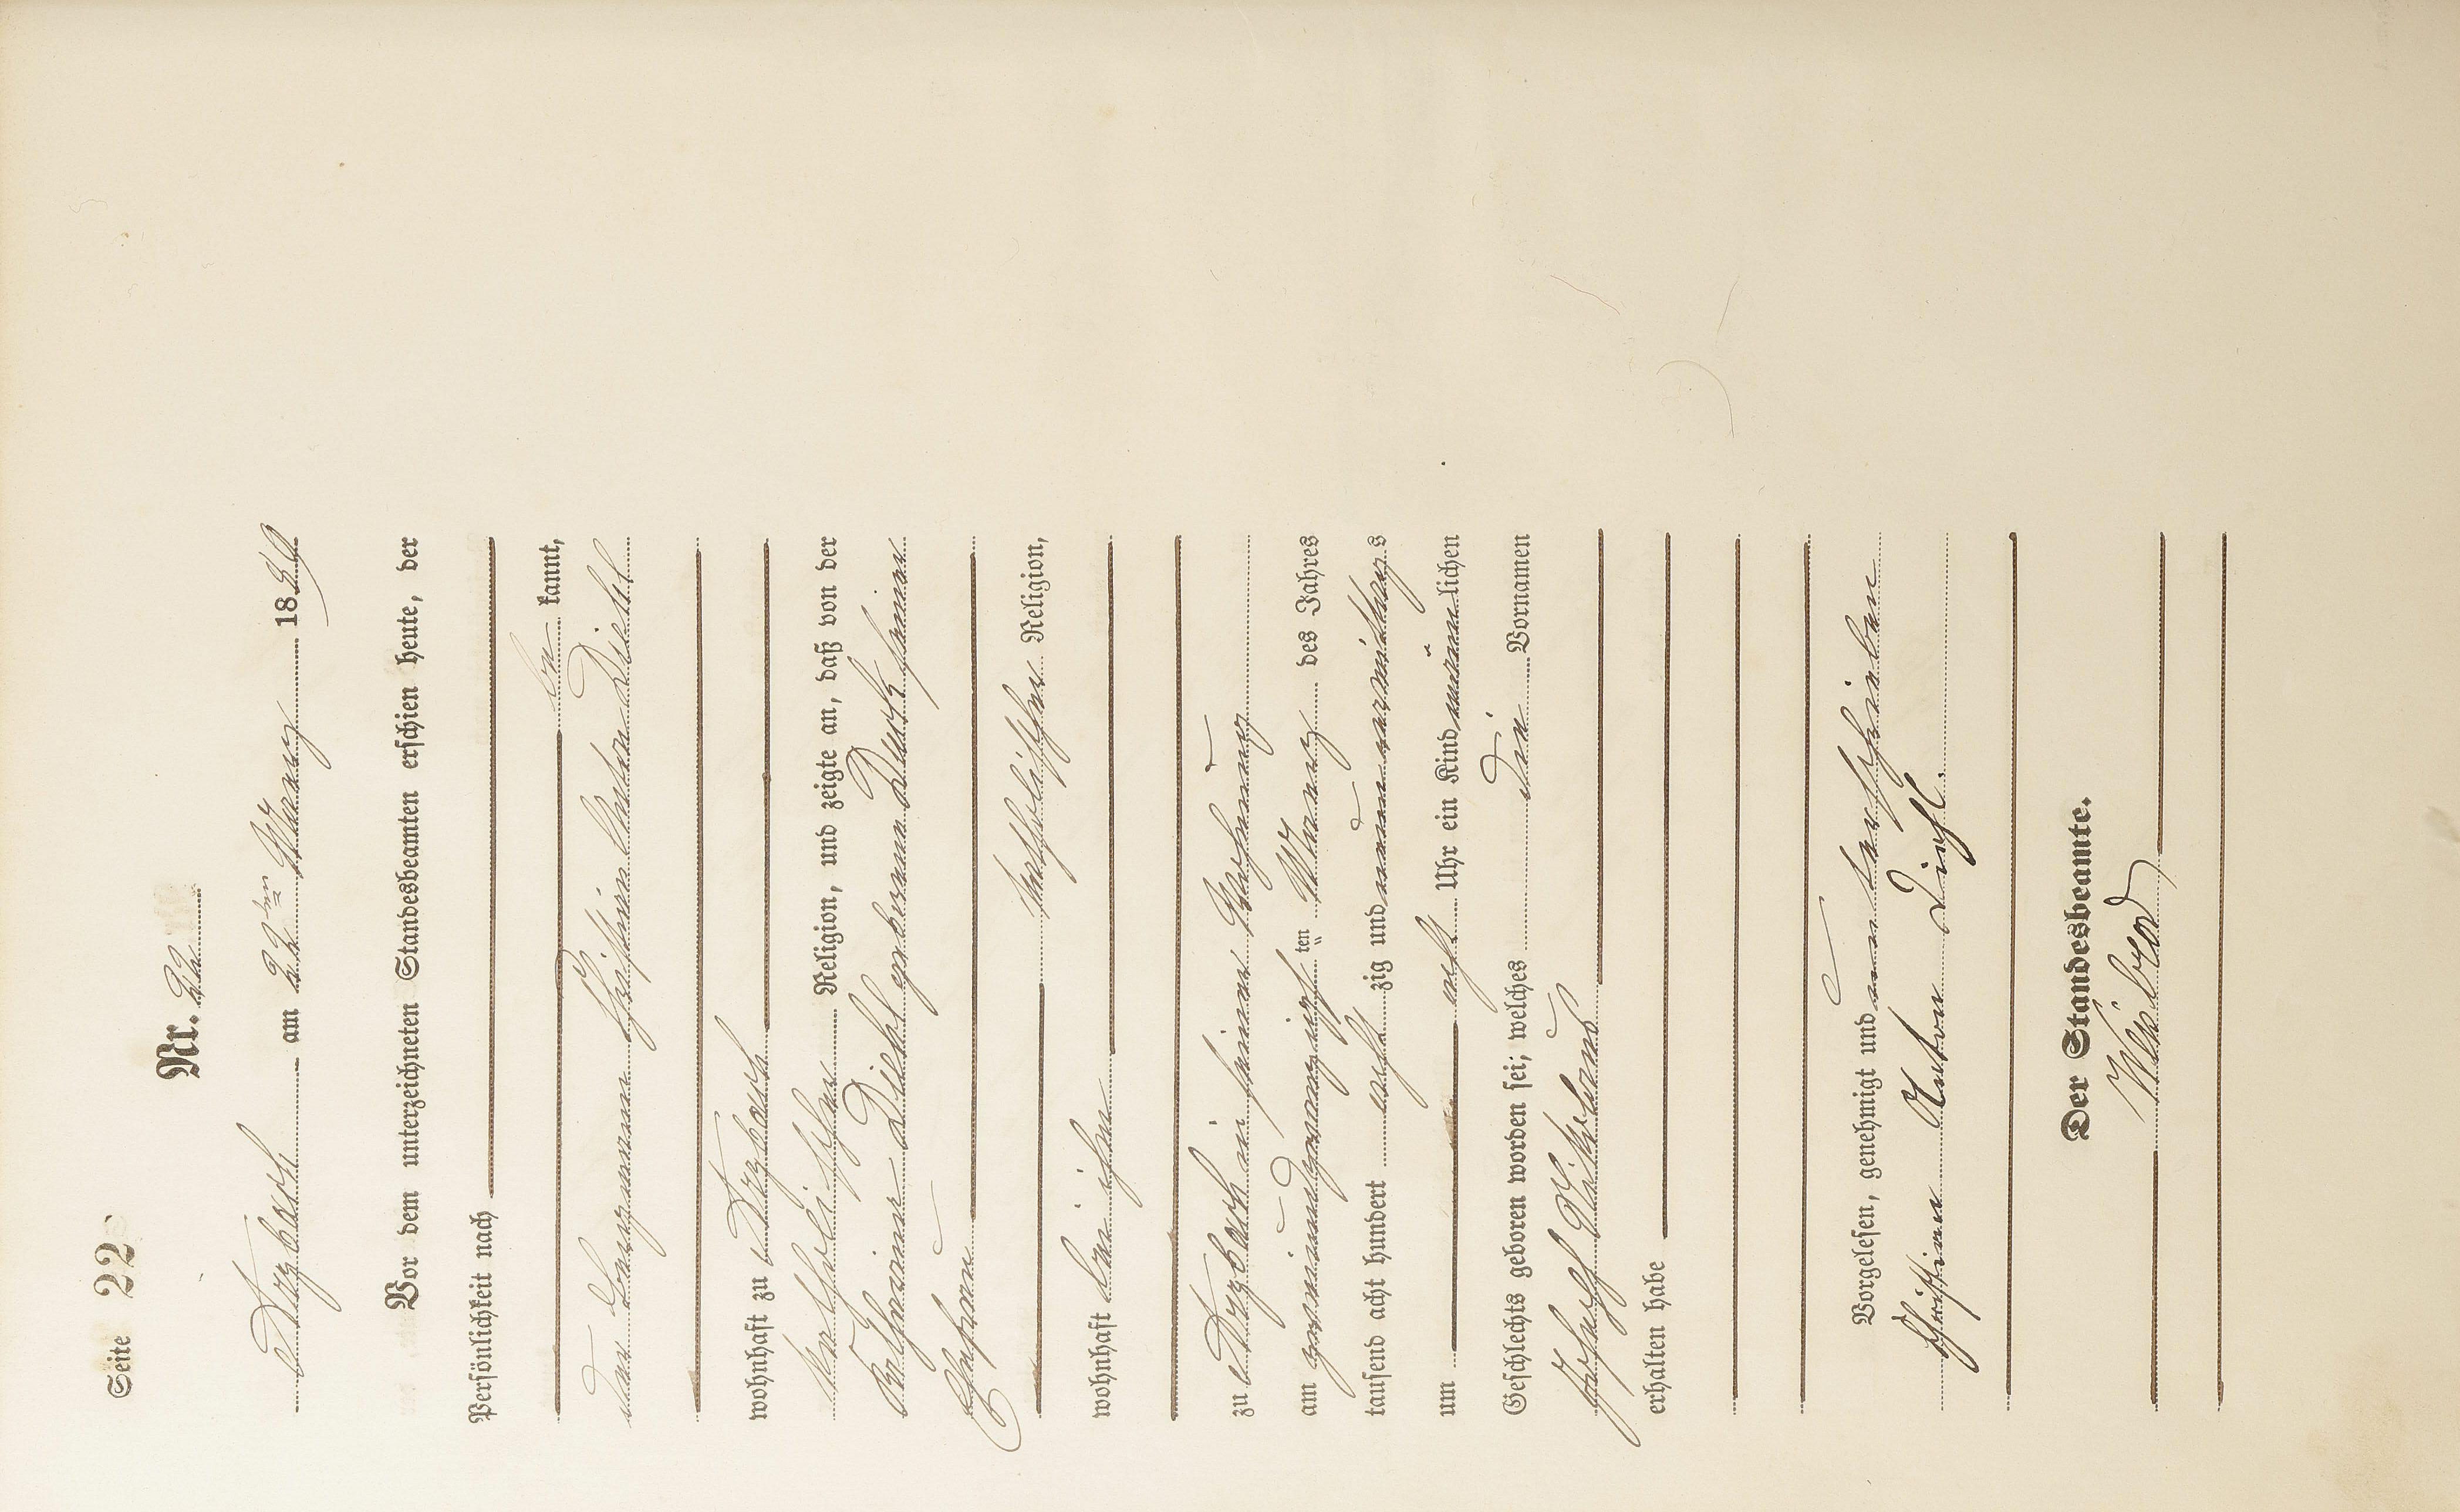 Seite 22
Nr. 22
Arzbach am 22ten März 1889
Vor dem unterzeichneten Standesbeamten erschien heute, der
Persönlichkeit nach
be kannt,
der Bergmann Christian Anton Diehl
wohnhaft zu Arzbach
katholischer Religion, und zeigte an, daß von der
Katharina Diehl geborenen Durst seiner
Ehefrau
katholischer Religion,
wohnhaft bei ihm
zu Arzbach in seiner Wohnung
am zweiundzwanzigsten März des Jahres
tausend acht hundert acht zig und neun vormittags
um acht Uhr ein Kind männlichen
Geschlechts geboren worden sei, welches die Vornamen
Joseph
erhalten habe
Vorgelesen, genehmigt und unterschrieben
Christian Anton Diehl.
Der Standesbeamte.